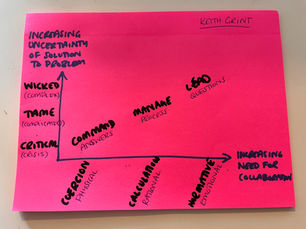 KEITH GRINT
INCREASING
UNCERTAINTY
OF SOLUTION
TO PROBLEM
WICKED
(COMPLEX)
TAME
(COMPLICATED)
CRITICAL
(CRISIS)
COMMAND
ANSWERS
MANAGE
PROCESS
LEAD
QUESTIONS
COERCION
PHYSICAL
CALCULATION
RATIONAL
NORMATIVE
EMOTIONAL
INCREASING
NEED FOR
COLLABORATION